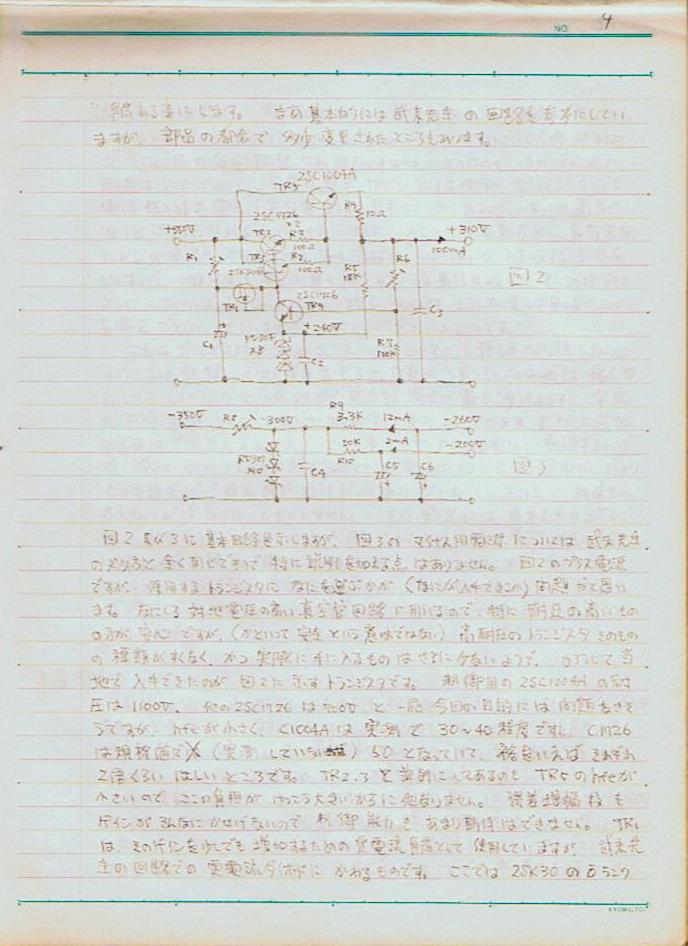 NO. 4
にします。 なお基本的には武末先生の回路を参考にしてい
ますが 部品の都合で 多少変更されたところもあります。
2SC1004A
TR5
2SC1726
×2
R9
10Ω
+350V
+310V
TR2
R3
100Ω
100mA
R1
TR3
R2
100Ω
R5
18K
R6
図2
TR1
2SC1726
TR4
+240V
C1
×8
C2
R7
100K
C3
-350V
R8
-300V
R9
3.3K
12mA
-260V
2mA
-200V
RD301
×10
C4
30K
R10
C5
C6
図3
図2及び3に基本回路を示しますが、 図3のマイナス用電源については武末先生
のやり方と全く同じですので特に説明を加える点はありません。 図2のプラス電源
ですが 使用するトランジスタになにを選ぶかが (なにが入手できるか) 問題だと思い
ます。 なにしろ対地電圧の高い真空管回路に用いるので、特に耐圧の高いもの
の方が安心ですが、(かといって安全という意味ではない) 高耐圧のトランジスタそのもの
の種類が少なく、かつ実際に手に入るものはさらに少ないようで、 かろうじて当
地で入手できたのが 図2に示すトランジスタです。 制御用の2SC1004Aの耐
圧は1100V、 他の2SC1726は300Vと一応今回の目的には問題なさそ
うですが、 hfeが小さく、C1004Aは実測で30〜40程度です。 C1726
は規格値で (実測していない) 50となっていて、 をいえばそれぞれ
2倍くらいほしいところです。 TR2.3と並列にしてあるのも TR5のhfeが
小さいので ここの負担がけっこう大きいからに他なりません。 誤差増幅段も
ゲインがそんなにかせげないので 制御能力もあまり期待はできません。 TR1
は、そのゲインを少しでも増加するための定電流負荷として使用していますが、 武末先
生の回路での定電流ダイオードにかわるものです。 ここでは2SK30のGランク
KYOKUTO